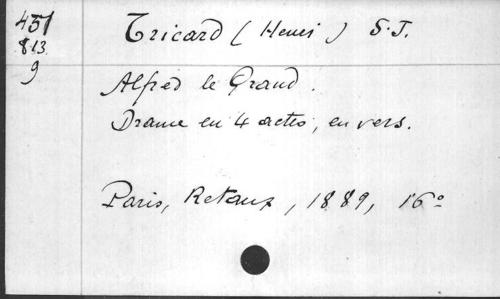 451
813
9
Tricard (Henri) S.J.
Alfred le Grand.
Drame en 4 actes, en vers.
Paris, Retaux, 1889, 16°